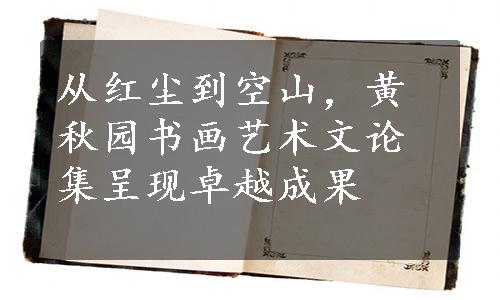 从红尘到空山，黄
秋园书画艺术文论
集呈现卓越成果